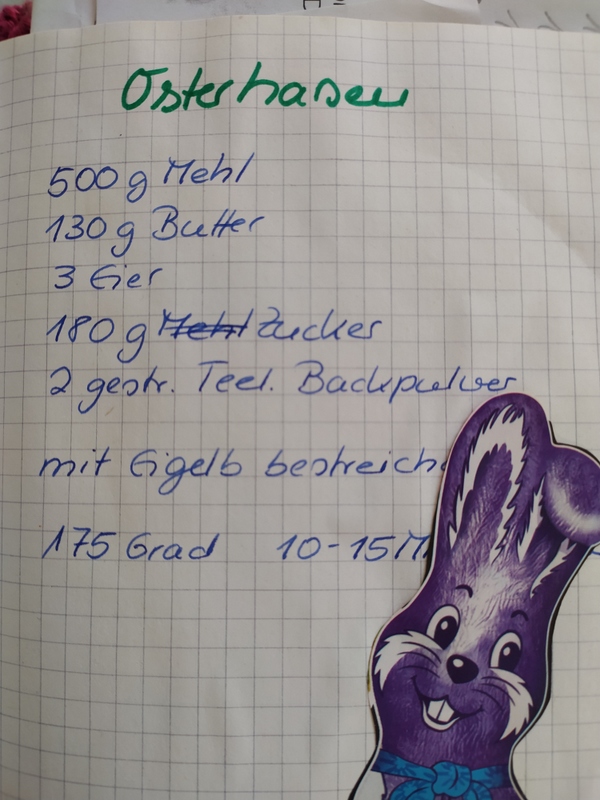 Osterhasen
500 g Mehl
130 g Butter
3 Eier
180 g Mehl Zucker
2 gestr. Teel. Backpulver
mit Eigelb bestreich
175 Grad 10-15 M